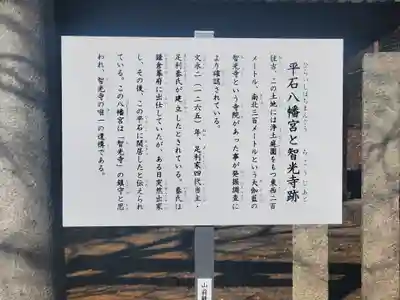 平石八幡宮と智光寺跡
往古、この土地には浄土庭園をもつ東西二百
メートル、南北三百メートルという大伽藍の
智光寺という寺院があった事が発掘調査に
より確認されている。
文永二(一二六五)年、足利家四代当主・
足利泰氏が建立したとされている。泰氏は
鎌倉幕府に出仕していたが、ある日突然出家
し、その後、この平石に閑居したと伝えられ
ている。この八幡宮は「智光寺」の鎮守と思
われ、智光寺の唯一の遺構である。